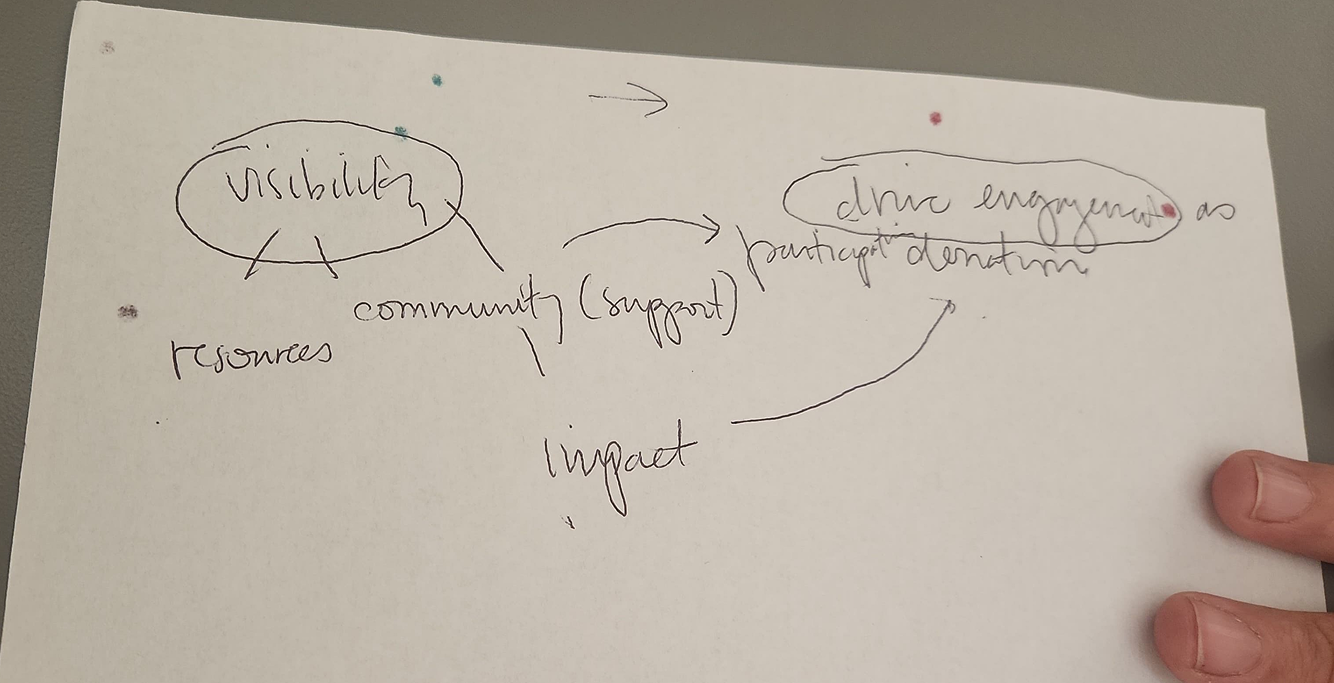 visibility
drive engagement as
participation donation
community (support)
resources
impact